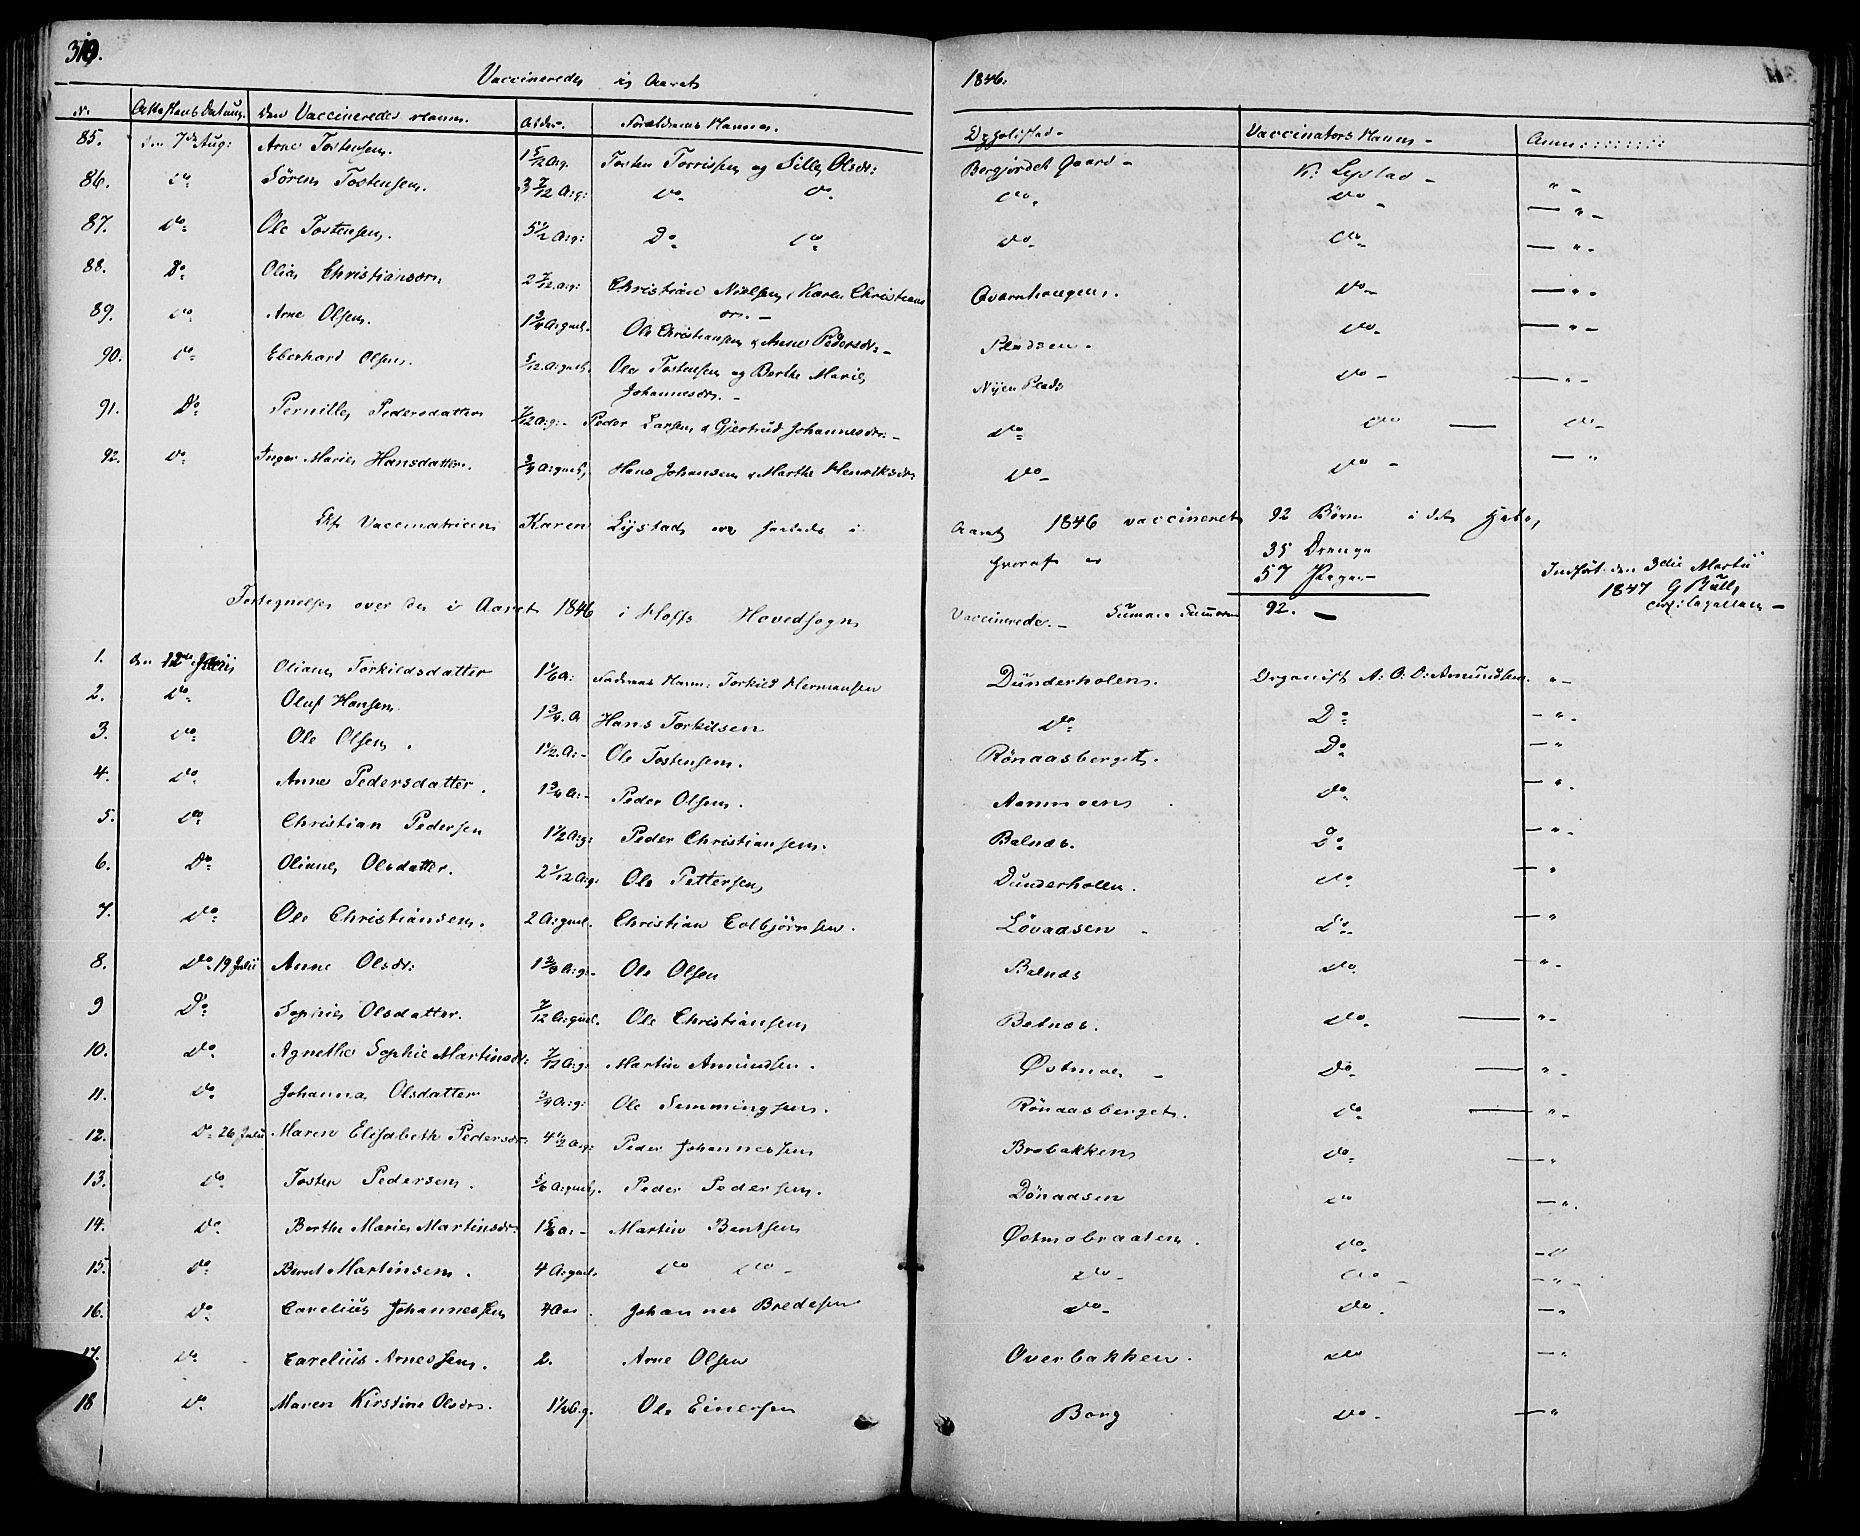 310.
Vaccinerede i Aaret 1846.
No. Attestens Datum. Den Vaccineredes Navn. Alder. Forældrenes Navne. Opholdsted Vaccinators Navn Anm
85. den 7de Aug: Arne Tostensen. 1 5/12 A:g. Tosten Torrissen og Sille Olsdr: Bergjordet Gaard K. Lystad "
86. Do Søren Tostensen. 3 7/12 A:g: Do Do Do Do "
87. Do Ole Tostensen. 5 1/2 A:g: Do Do Do Do "
88. Do Olia Christiansdr. 2 7/12 A:g: Christian Nielsen, Karen Christians Qvarnhaugen. Do "
dr.
89. Do Arne Olsen. 1 3/4 A:gml. Ole Christiansen & Anne Pedersdr: Pladsen Do "
90. Do Eberhard Olsen. 5/12 A:gml. Ole Tostensen og Berthe Marie Nyen Plads Do "
Johannesdr.
91. Do Pernille Pedersdatter 7/12 A:g: Peder Larsen & Gjertrud Johannesdr: Do Do Do
92. Do Inger Marie Hansdatter. 3/4 A:gml. Hans Johansen & Marthe Henriksdr Do Do "
Af Vaccinatricen Karen Lystad er saaledes i Aaret 1846 vaccineret 92 Børn i det Hele,
hvoraf er 35 Drenge
57 Piger
Indført den 3die Martii
1847 G Bull,
Fortegnelse over de i Aaret 1846 i Hoffs Hovedsogn Vaccinerede. Summa Summarum 92.
1. den 12te Julii Oliane Torkildsdatter 1 1/6 A: Faderens Navn: Torkild Hermansen Dunderholen. Organist A: O. O: Amundsen. "
2. Do Oluf Hansen 1 3/4 A Hans Torkilsen Do Do "
3. Do Ole Olsen. 1 1/2 A: Ole Tostensen. Rönaasberget. Do "
4. Do Anne Pedersdatter. 1 3/4 A: Peder Olsen. Aamnoen Do "
5. Do Christian Pedersen 1 1/2 A:g: Peder Christiansen. Balnæs. Do "
6. Do Oliane Olsdatter. 2 1/12 A:g: Ole Pettersen Dunderholen. Do "
7. Do Ole Christiansen. 2 A:gml. Christian Colbjörnsen. Lövaasen Do "
8. Do 19 Julii Anne Olsdr: 1 3/4 A:g: Ole Olsen Balnæs Do "
9 Do Sophie Olsdatter. 7/12 A:gml. Ole Christiansen Balnæs. Do "
10. Do Agnethe Sophie Martinsdr: 7/12 A:g: Martin Amundsen. Østmoe Do "
11. Do Johanna Olsdatter 3/4 A:g: Ole Semmingsen. Rönaasberget. Do "
12. Do 26 Julii Maren Elisabeth Pedersdr: 4 1/2 A:g: Peder Johannessen Brobakken Do "
13. Do Tosten Pedersen. 5/6 A:gml. Peder Pedersen. Dönaasen Do "
14. Do Berthe Marie Martinsdr: 1 5/6 A: Martin Bentsen Østmobraaten. Do "
15. Do Bernt Martinsen. 4 A:gml. Do Do Do Do "
16. Do Carelius Johannessen 4 Aar Johannes Bredesen Do Do "
17. Do Carelius Arnessen. 2. Arne Olsen Overbakken. Do "
18 Do Maren Kirstine Olsdr. 1 1/2 A.g. Ole Einersen Borg Do "